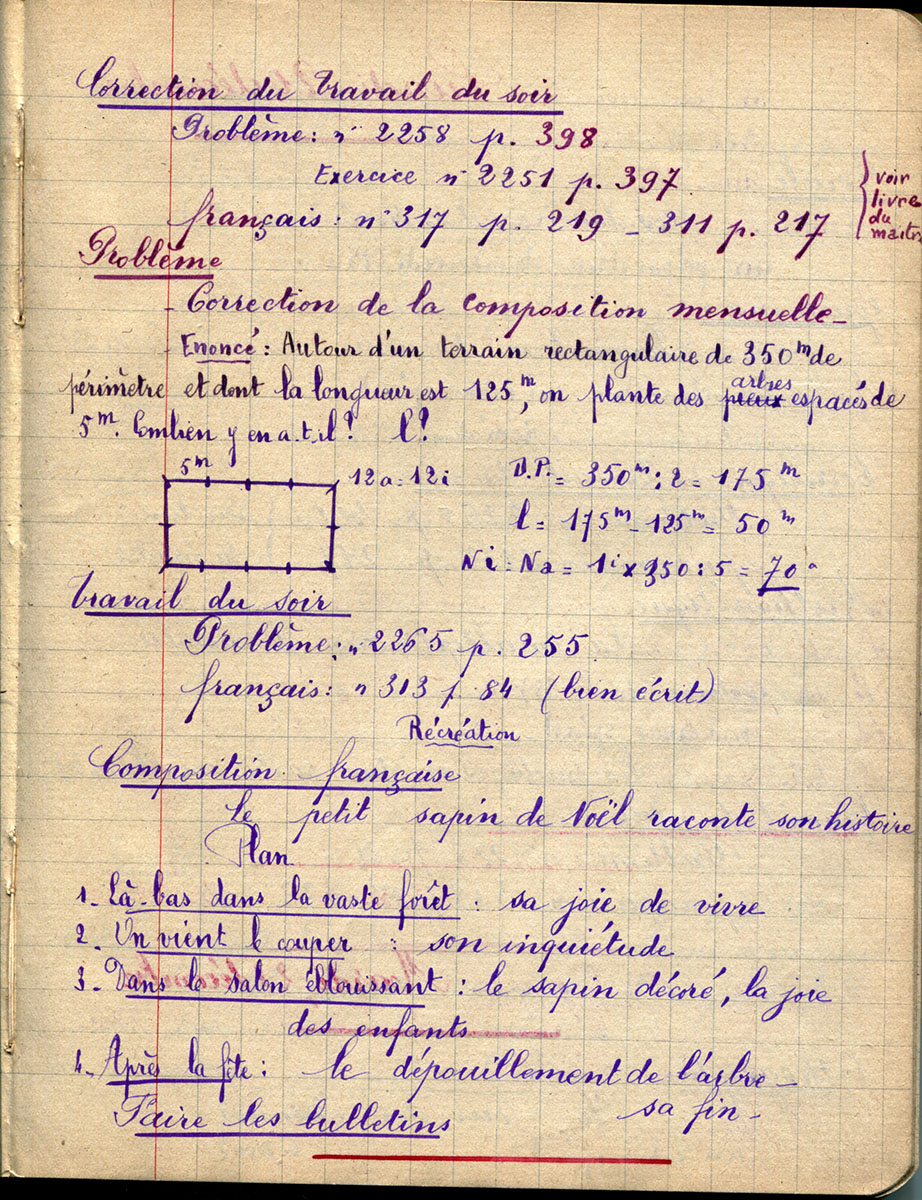 Correction du travail du soir
Problème : n° 2258 p. 398
Exercice n° 2251 p. 397
français : n° 317 p. 219 - 311 p. 217
voir
livre
du
maitre
Problème
- Correction de la composition mensuelle -
- Enoncé : Autour d'un terrain rectangulaire de 350 m de
périmètre et dont la longueur est 125 m, on plante des pieux arbres espacés de
5 m. Combien y en a-t-il ? l ?
5 m
12 a = 12 i
D.P. = 350 m : 2 = 175 m
l = 175 m - 125 m = 50 m
N i = N a = 1 i x 350 : 5 = 70 a
Travail du soir
Problème : n° 2265 p. 255
français : n° 313 p. 84 (bien écrit)
Récréation
Composition française
Le petit sapin de Noël raconte son histoire
Plan
1- Là-bas dans la vaste forêt : sa joie de vivre
2- On vient le couper : son inquiétude
3- Dans le salon éblouissant : le sapin décoré, la joie
des enfants
4- Après la fête : le dépouillement de l'arbre -
sa fin -
Faire les bulletins